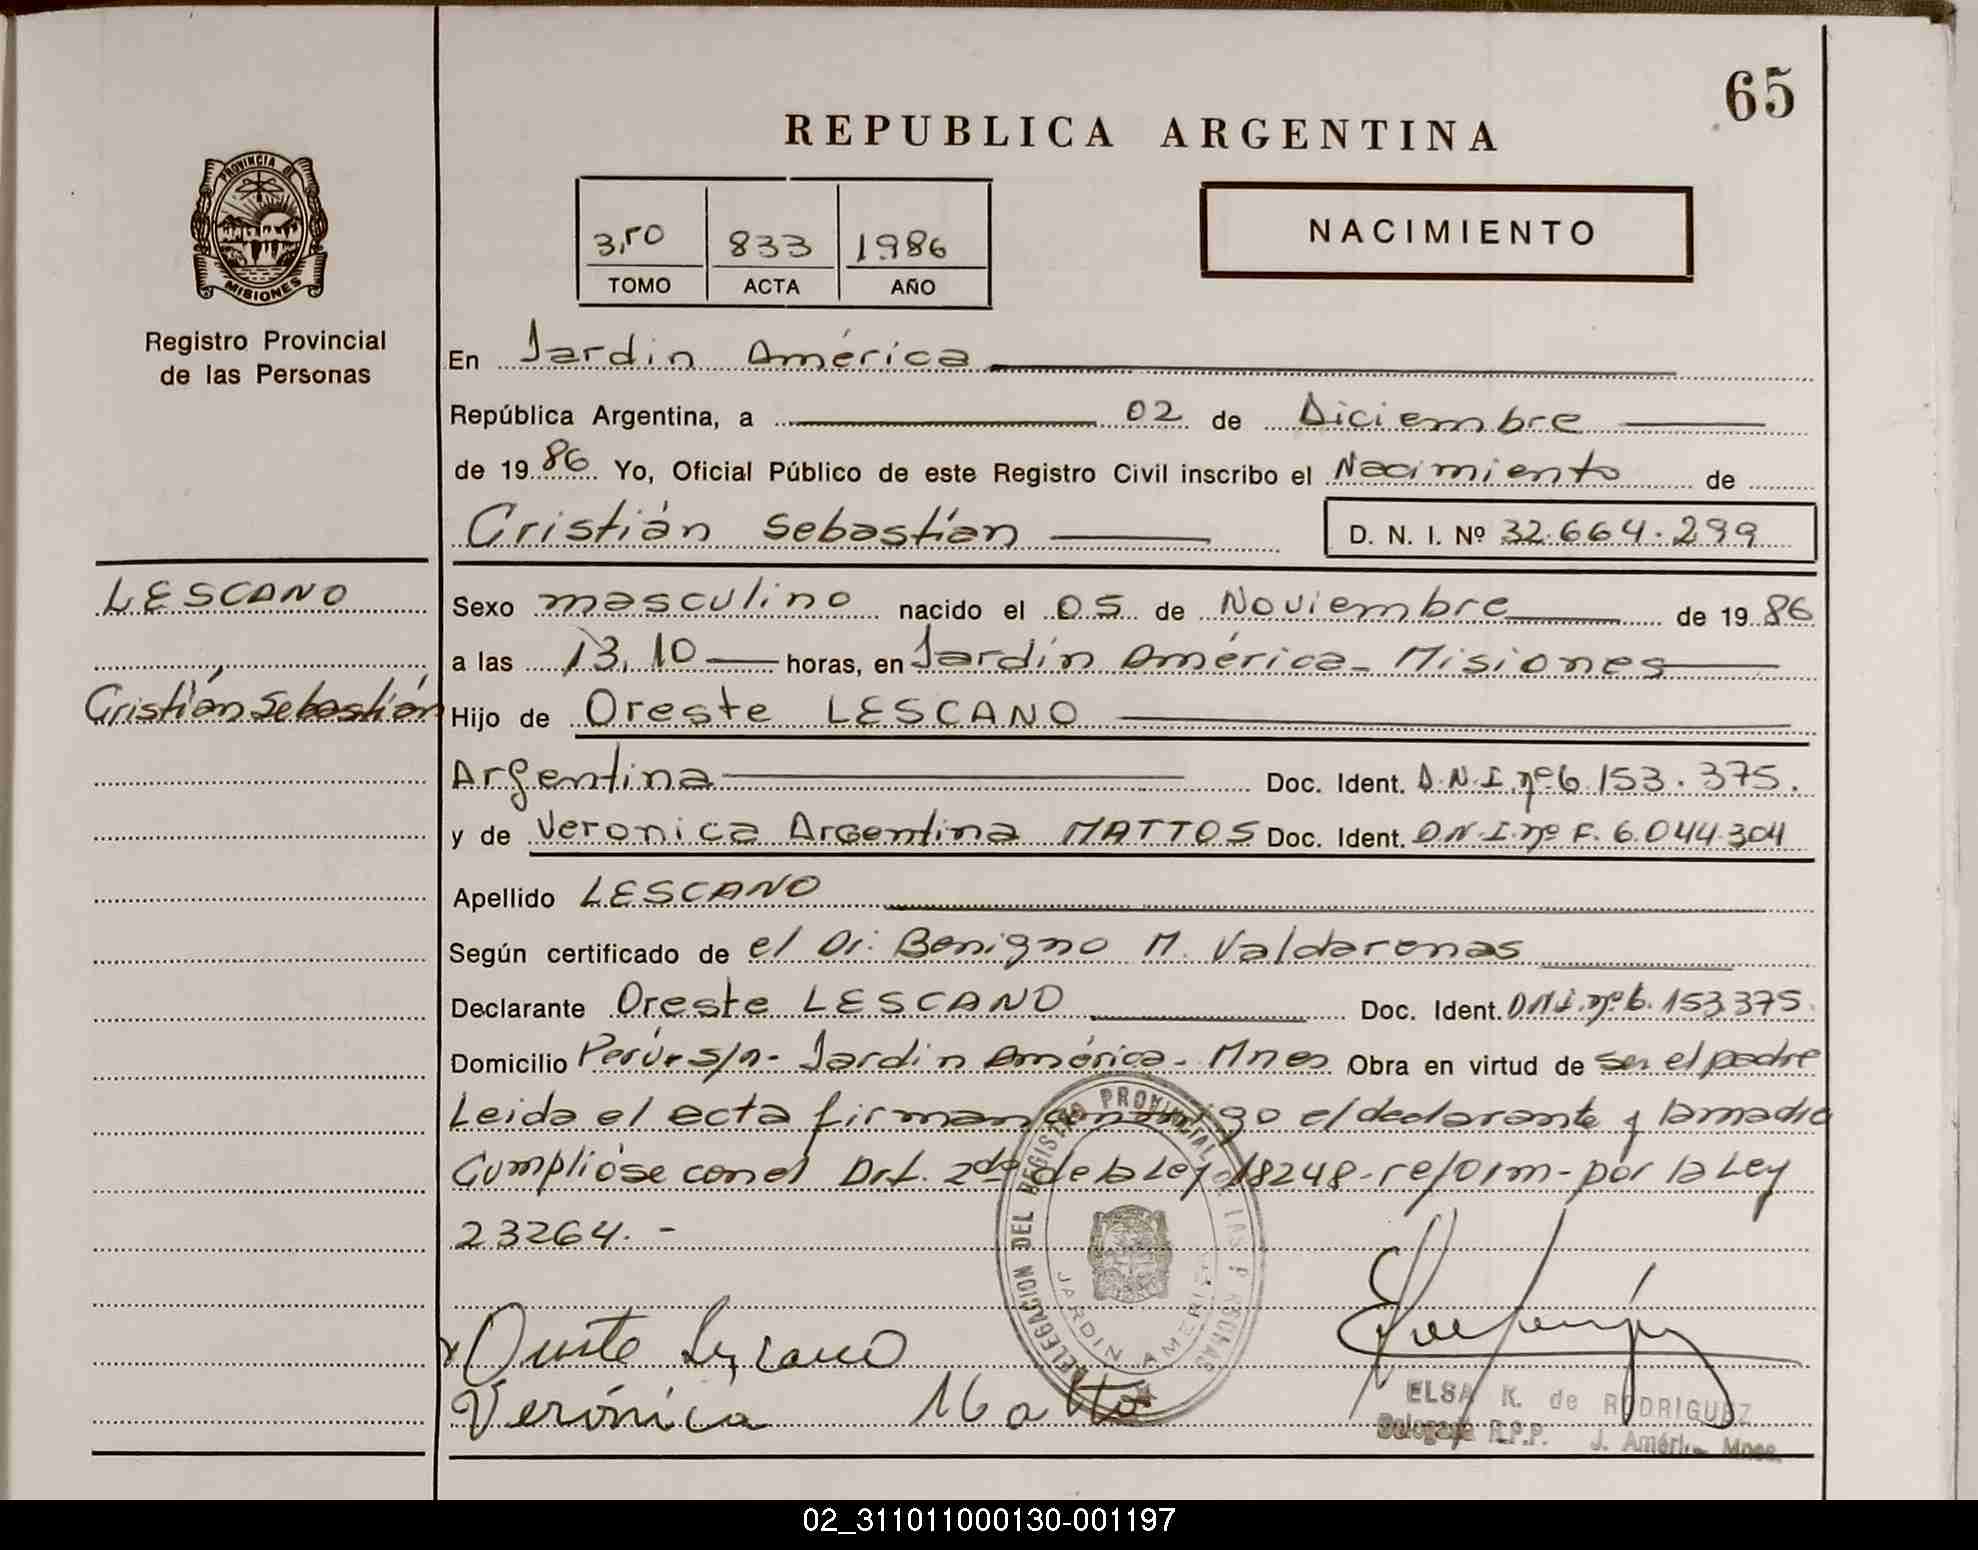 65
REPUBLICA ARGENTINA
PROVINCIA DE
MISIONES
Registro Provincial
de las Personas
3,ro 833 1986
TOMO ACTA AÑO
NACIMIENTO
En Jardin América
República Argentina, a 02 de Diciembre
de 1986 Yo, Oficial Público de este Registro Civil inscribo el Nacimiento de
Cristián Sebastían D. N. I. Nº 32.664.299
LESCANO
Cristián Sebastián
Sexo masculino nacido el 05 de Noviembre de 1986
a las 13,10 horas, en Jardín América - Misiones
Hijo de Oreste LESCANO
Argentina Doc. Ident. D.N.I. nº 6.153.375.
y de Veronica Argentina MATTOS Doc. Ident. D.N.I. nº F. 6.044.304
Apellido LESCANO
Según certificado de el Dr. Benigno M. Valdarenas
Declarante Oreste LESCANO Doc. Ident. DNI. nº 6.153.375.
Domicilio Perú s/n - Jardin América - Mnes Obra en virtud de ser el padre
Leida el acta firman conmigo el declarante y la madre
Cumplióse con el Art. 2do de la Ley 18248 - reform - por la Ley
23264. -
DELEGACION DEL REGISTRO PROVINCIAL DE LAS PERSONAS
JARDIN AMERICA
Oreste Lescano
Verónica Matto
ELSA K. de RODRIGUEZ
Delegada R.P.P. J. América Mnes.
02_311011000130-001197